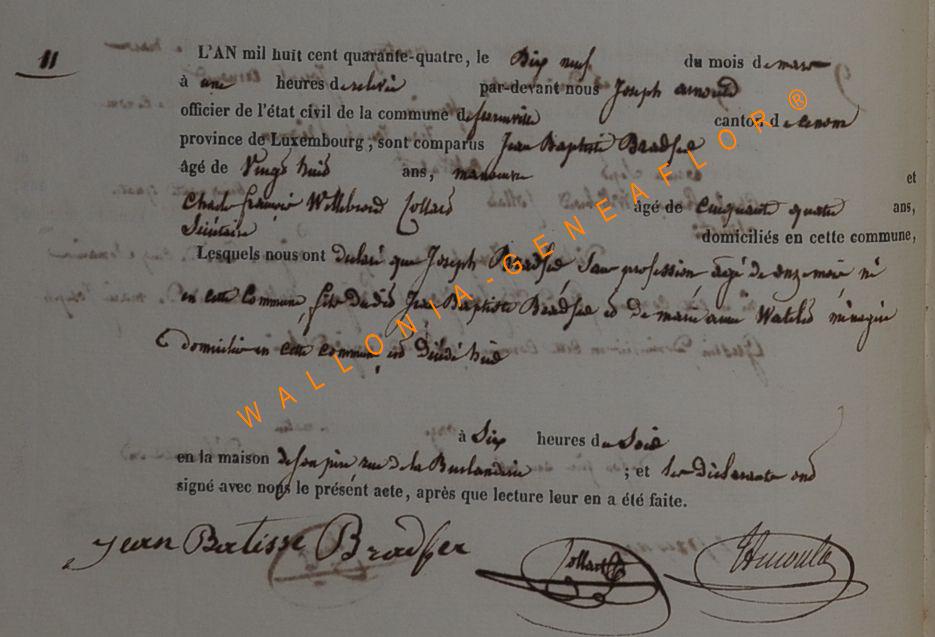 11
L'AN mil huit cent quarante-quatre, le Dix neuf du mois de mars
à une heures de relevée par-devant nous Joseph arnould
officier de l'état civil de la commune de canton de
province de Luxembourg, sont comparus Jean Baptiste Bradfer
âgé de Vingt huit ans, manoeuvre et
Charle françois Willebrord Collard âgé de Cinquante quatre ans,
domiciliés en cette commune,
Lesquels nous ont déclaré que Joseph Bradfer Sans profession âgé de onze mois né
en cette Commune, fils dudit Jean Baptiste Bradfer et de marie anne Watelet ménagère
domicilié en cette commune, est Décédé hier
à Six heures du Soir
en la maison de son père rue de la ; et les Déclarants ont
signé avec nous le présent acte, après que lecture leur en a été faite.
Jean Batisse Bradfer Collard
WALLONIA-GENEAFLOR®